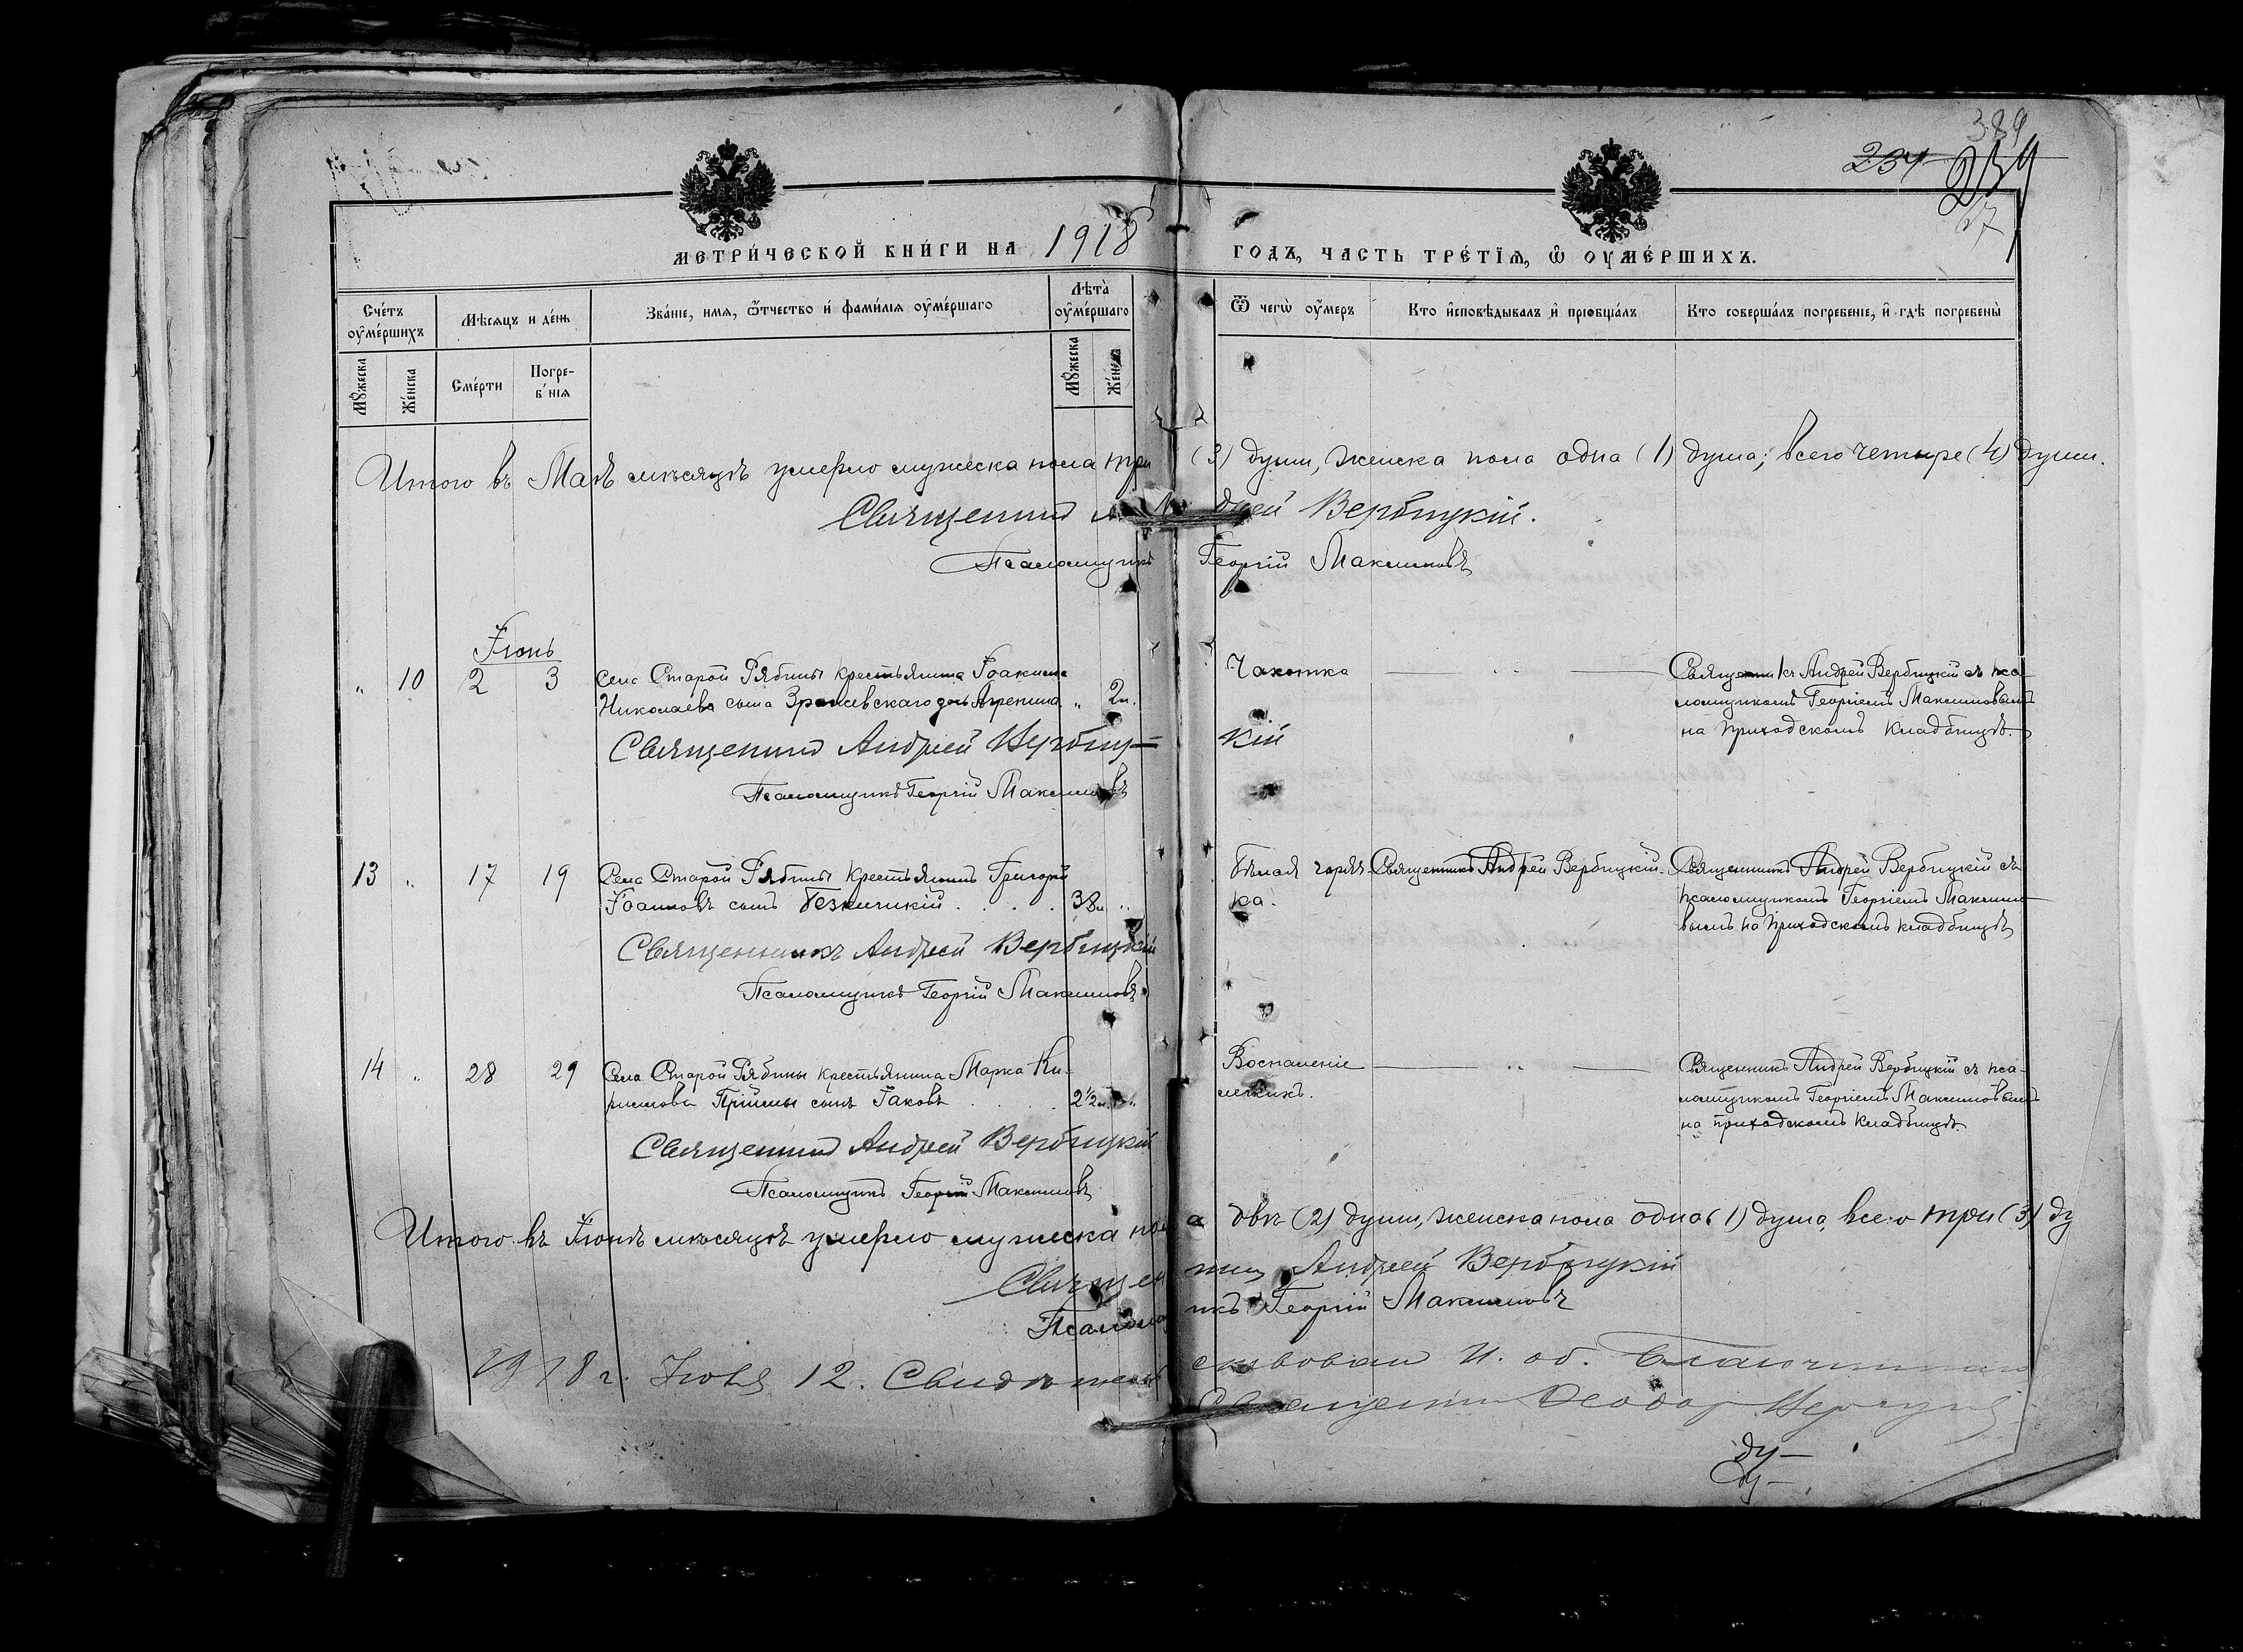 389
234 239
17
МЕТРИ́ЧЕСКОЙ КНИ́ГИ НА 1918 ГОДЪ, ЧАСТЬ ТРЕ́ТЇѦ, Ѽ ОУМЕ́РШИХЪ.
Сче́тъ оумершихъ
Мѣсяцъ и де́нь
Зва́нїе, имя, ѿтчество и҆ фами́лїя оуме́ршаго
Лѣта̀ оуме́ршаго
Ѿ чегѡ̀ оу́меръ
Кто и҆сповѣдывалъ и҆ прїобща́лъ
Кто соверша́лъ погребенїе, и҆ гдѣ погребены̀
Мꙋжеска
Же́нска
Сме́рти
Погре-
б'нїя
Мꙋжеска
Же́нска
Итого въ Маѣ мѣсяцѣ умерло мужеска пола три (3) души, женска пола одна (1) душа; всего четыре (4) души.
Священник Андрей Вербицкій.
Псаломщикъ Георгій Максимовъ
Іюнь
„ 10 2 3 Села Старой Рябины крестьянина Іоакима
Николаева сына дочь Агрепина „ 2м.
Чахотка
Священникъ Андрей Вербицкій съ пса
ломщикомъ Георгіемъ Максимовымъ
на приходскомъ кладбищѣ.
Священник Андрей Вербиц-кій
Псаломщикъ Георгій Максимовъ
13 „ 17 19 Села Старой Рябины крестьянинъ Григорій
Іоанновъ сынъ . . . . 38л „
Бѣлая горяч-
ка.
Священникъ Андрей Вербицкій.
Священникъ Андрей Вербицкій съ
псаломщикомъ Георгіемъ Максимо
вымъ на приходскомъ кладбищѣ
Священникъ Андрей Вербицкій
Псаломщикъ Георгій Максимовъ.
14 „ 28 29 Села Старой Рябины крестьянина Марка Ки-
риллова Пріймы сынъ Іаковъ . . . . 2½м. „
Воспаленіе
легкихъ.
Священникъ Андрей Вербицкій съ пса-
ломщикомъ Георгіемъ Максимовымъ
на приходскомъ кладбищѣ.
Священник Андрей Вербицкій
Псаломщикъ Георгій Максимовъ
Итого въ Іюнѣ мѣсяцѣ умерло мужеска пола двѣ (2) души, женска пола одна (1) душа, всего три (3) ду
Священник Андрей Вербицкій
Псаломщикъ Георгій Максимовъ
1918 г. Іюля 12. Свидѣтельствовал И. об. Благочиннаго
Священник Феодор
ду-
ду-